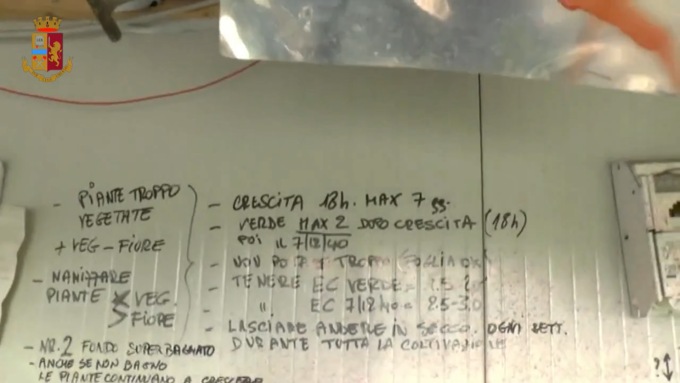 - PIANTE TROPPO
VEGETATE
+ VEG - FIORE
- NANIZZARE
PIANTE VEG.
FIORE
- NR. 2 FONDO SUPERBAGNATO
- ANCHE SE NON BAGNO
LE PIANTE CONTINUANO A CRESCERE
- CRESCITA 18h. MAX 7 gg.
- VERDE MAX 2 DOPO CRESCITA (18h)
POI IL 7/12/40
- NON TROPPO
- TENERE EC VERDE =
" EC 7/12/40 = 2.5-3.0
- LASCIARE ANDARE IN SECCO OGNI SETT.
DURANTE TUTTA LA COLTIVAZIONE
?